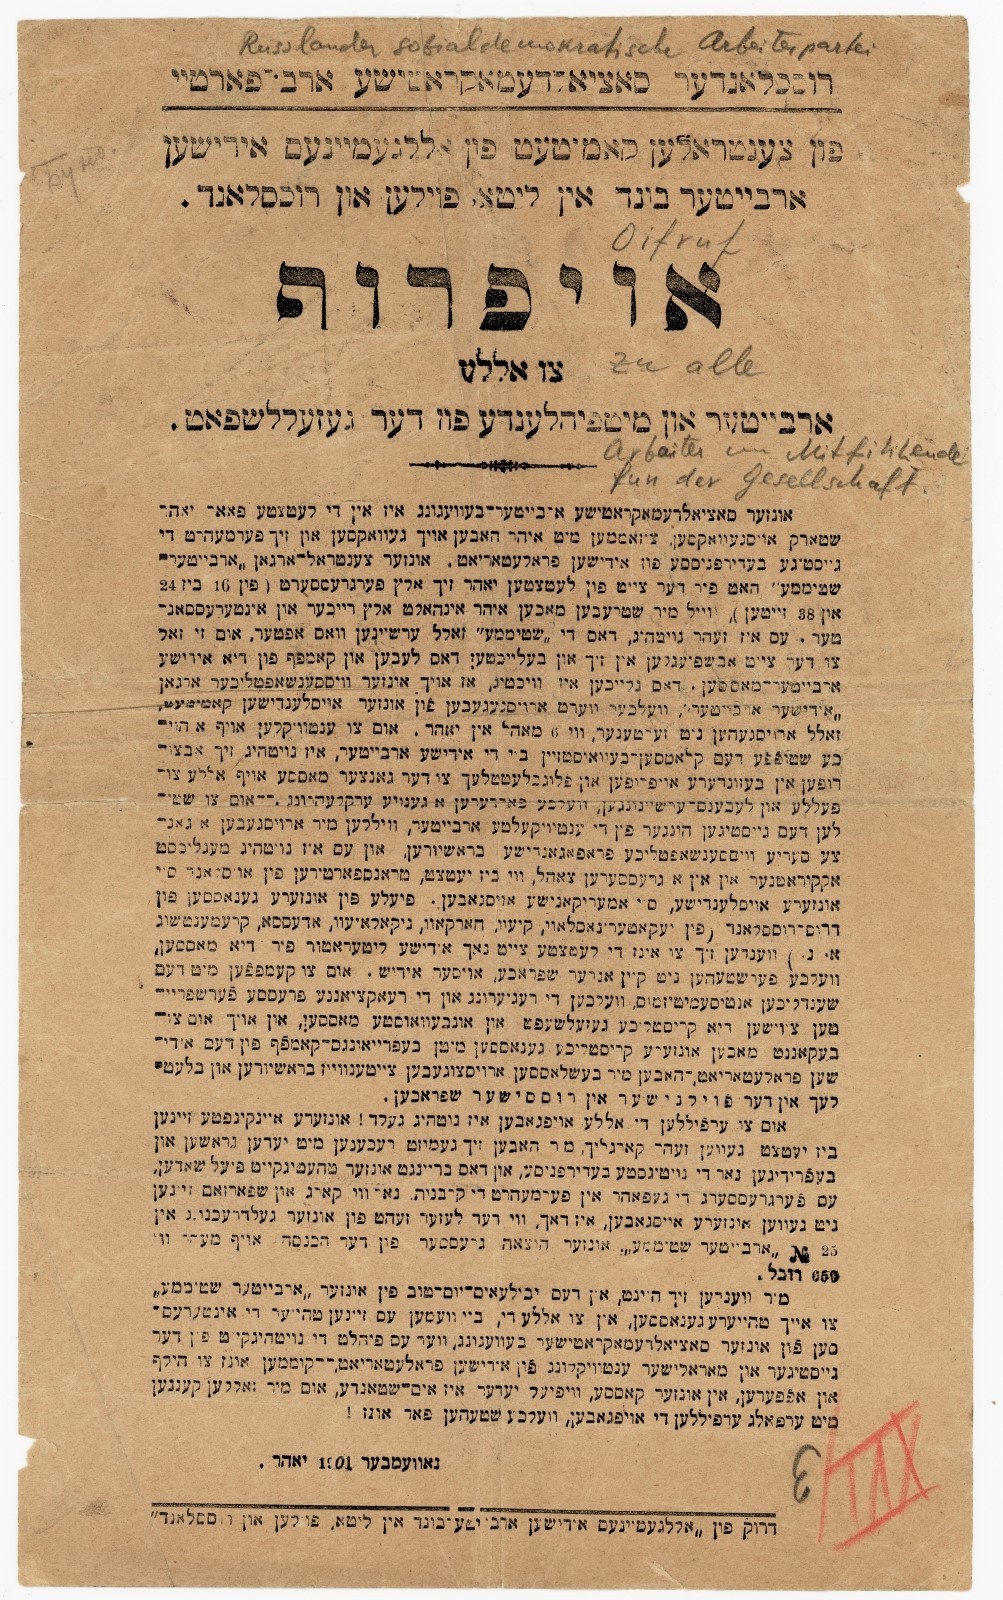 Russlander sozialdemokratische Arbeiterpartei
רוססלאנדער סאציאל־דעמאקראטישע ארב־פארטיי
פון צענטראלען קאמיטעט פון אללגעמיינעם אידישען
ארבייטער בונד אין ליטא, פוילען און רוססלאנד.
Oifruf
אויפרוף
צו אללע zu alle
ארבייטער און מיטפיהלענדע פון דער געזעללשפאט.
Arbeiter un Mitfihlende
fun der Gesellschaft.
אונזער סאציאלדעמאקראטישע ארבייטער־בעוועגונג איז אין די לעטצטע פאאר יאהר
שטארק אויסגעוואקסען. צוזאממען מיט איהר האבען אויך געוואקסען און זיך פערמעהרט די
גייסטיגע בעדירפניססע פון אידישען פראלעטאריאט. אונזער צענטראל־ארגאן „ארבייטער־
שטיממע" האט פיר דער צייט פון לעטצטען יאהר זיך אלץ פערגרעססערט (פון 16 ביז 24
און 38 זייטען), ווייל מיר שטרעבען מאכען איהר אינהאלט אלץ רייכער און אינטערעססאנ־
טער. עס איז זעהר נויטהיג, דאס די „שטיממע" זאלל ערשיינען וואס אפטער, אום זי זאל
צו דער צייט אבשפיעגלען אין זיך און בעלייכטען דאס לעבען און קאמפף פון דיא אידישע
ארבייטער־מאססען. דאס גלייכען איז וויכטיג, אז אויך אונזער וויססענשאפטליכער ארגאן
„אידישער ארבייטער", וועלכער ווערט ארויסגעגעבען פון אונזער אויסלענדישען קאמיטעט,
זאלל ארויסגעהען ניט זעלטענער, ווי 6 מאהל אין יאהר. אום צו ענטוויקלען אויף א הוי־
כע שטופפע דעם קלאססען־בעוואוסטזיין ביי די אידישע ארבייטער, איז נויטהיג זיך אבצו־
רופען אין בעזונדערע אויפרופען און פלוגבלעטטלעך צו דער גאנצער מאססע אויף אללע צו־
פעללע און לעבענס־ערשיינונגען, וועלכע פארדערען א גענויע ערקלעהרונג. — אום צו שטי־
לען דעם גייסטיגען הונגער פון די ענטוויקעלטע ארבייטער, ווילען מיר ארויסגעבען א גאנ־
צע סעריע וויססענשאפטליכע פראפאגאנדישע בראשיורען, און עס איז נויטהיג מעגליכסט
אקקוראטנער אין אין א גרעססערען צאהל, ווי ביז יעטצט, טראנספארטירען פון אויסלאנד סיי
אונזערע אויסלענדישע, סיי אמעריקאנישע אויסגאבען. פיעלע פון אונזערע גענאססען פון
דרום־רוססלאנד (פון יעקאטערינאסלאוו, קיעוו, חארקאוו, ניקאלאיעוו, אדעססא, קרעמענטשוג
א. נ.) ווענדען זיך צו אונז די לעטצטע צייט נאך אידישע ליטעראטור פיר דיא מאססען,
וועלכע פערשטעהען ניט קיין אנדער שפראכע, אויסער אידיש. אום צו קעמפפען מיט דעם
שענדליכען אנטיסעמיטיזמוס, וועלכען די רעגיערונג און די רעאקציאננע פרעססע פערשפריי־
טען צווישען דיא קריסטליכע געזעלשעפט אין אונבעוואוסטע מאססען, און אויך אום צו־
בעקאננט מאכען אונזערע קריסטליכע גענאססען מיטן בעפרייאונגס־קאמפף פון דעם אידי־
שען פראלעטאריאט, — האבען מיר בעשלאססען ארויסצוגעבען צייטענווייז בראשיורען און בלעט־
לעך אין דער פוילנישער אין רוססישער שפראכען.
אום צו ערפיללען די אללע אויפגאבען איז נוטהיג געלד! אונזערע איינקינפטע זיינען
ביז יעטצט געווען זעהר קארגליך, מיר האבען זיך געמיזט רעכענען מיט יעדען גראשען און
בעפרידיגען נאר די נויטיגסטע בעדירפניסע, און דאס ברייינגט אונזער טהעטיגקייט פיעל שאדען,
עס פערגרעססערט די געפאהר אין פערמעהרט די קרבנות. נאר ווי קארג און שפארזאם זיינען
ניט געווען אונזערע אויסגאבען, איז דאך, ווי דער לעזער זעהט פון אונזער געלדרעכנונג אין
№ 25 „ארבייטער שטיממע", אונזער הוצאה גרעסער פון דער הכנסה אויף מעהר ווי
650 רובל.
מיר ווענדען זיך היינט, אין דעם יבילעאום־יום־טוב פון אונזער „ארבייטער שטיממע"
צו אייך טהייערע גענאססען, אין צו אללע די, ביי וועמען עס זיינען טהייער די אינטערעס־
סען פון אונזער סאציאלדעמאקראטישער בעוועגונג, ווער עס פיהלט די נויטהיגקייט פון דער
גייסטיגער און מאראלישער ענטוויקלונג פון אידישען פראלעטאריאט, — קוממען אונז צו הילף
און אפפערען, אין אונזער קאססע, וויפיעל יעדער איז אים־שטאנדע, אום מיר זאללען קעננען
מיט ערפאלג ערפיללען די אויפגאבען, וועלכע שטעהען פאר אונז!
נאוועמבער 1901 יאהר.
3
XVI
דרוק פון „אללגעמיינעם אידישען ארבייטער־בונד אין ליטא, פוילען און רוססלאנד"